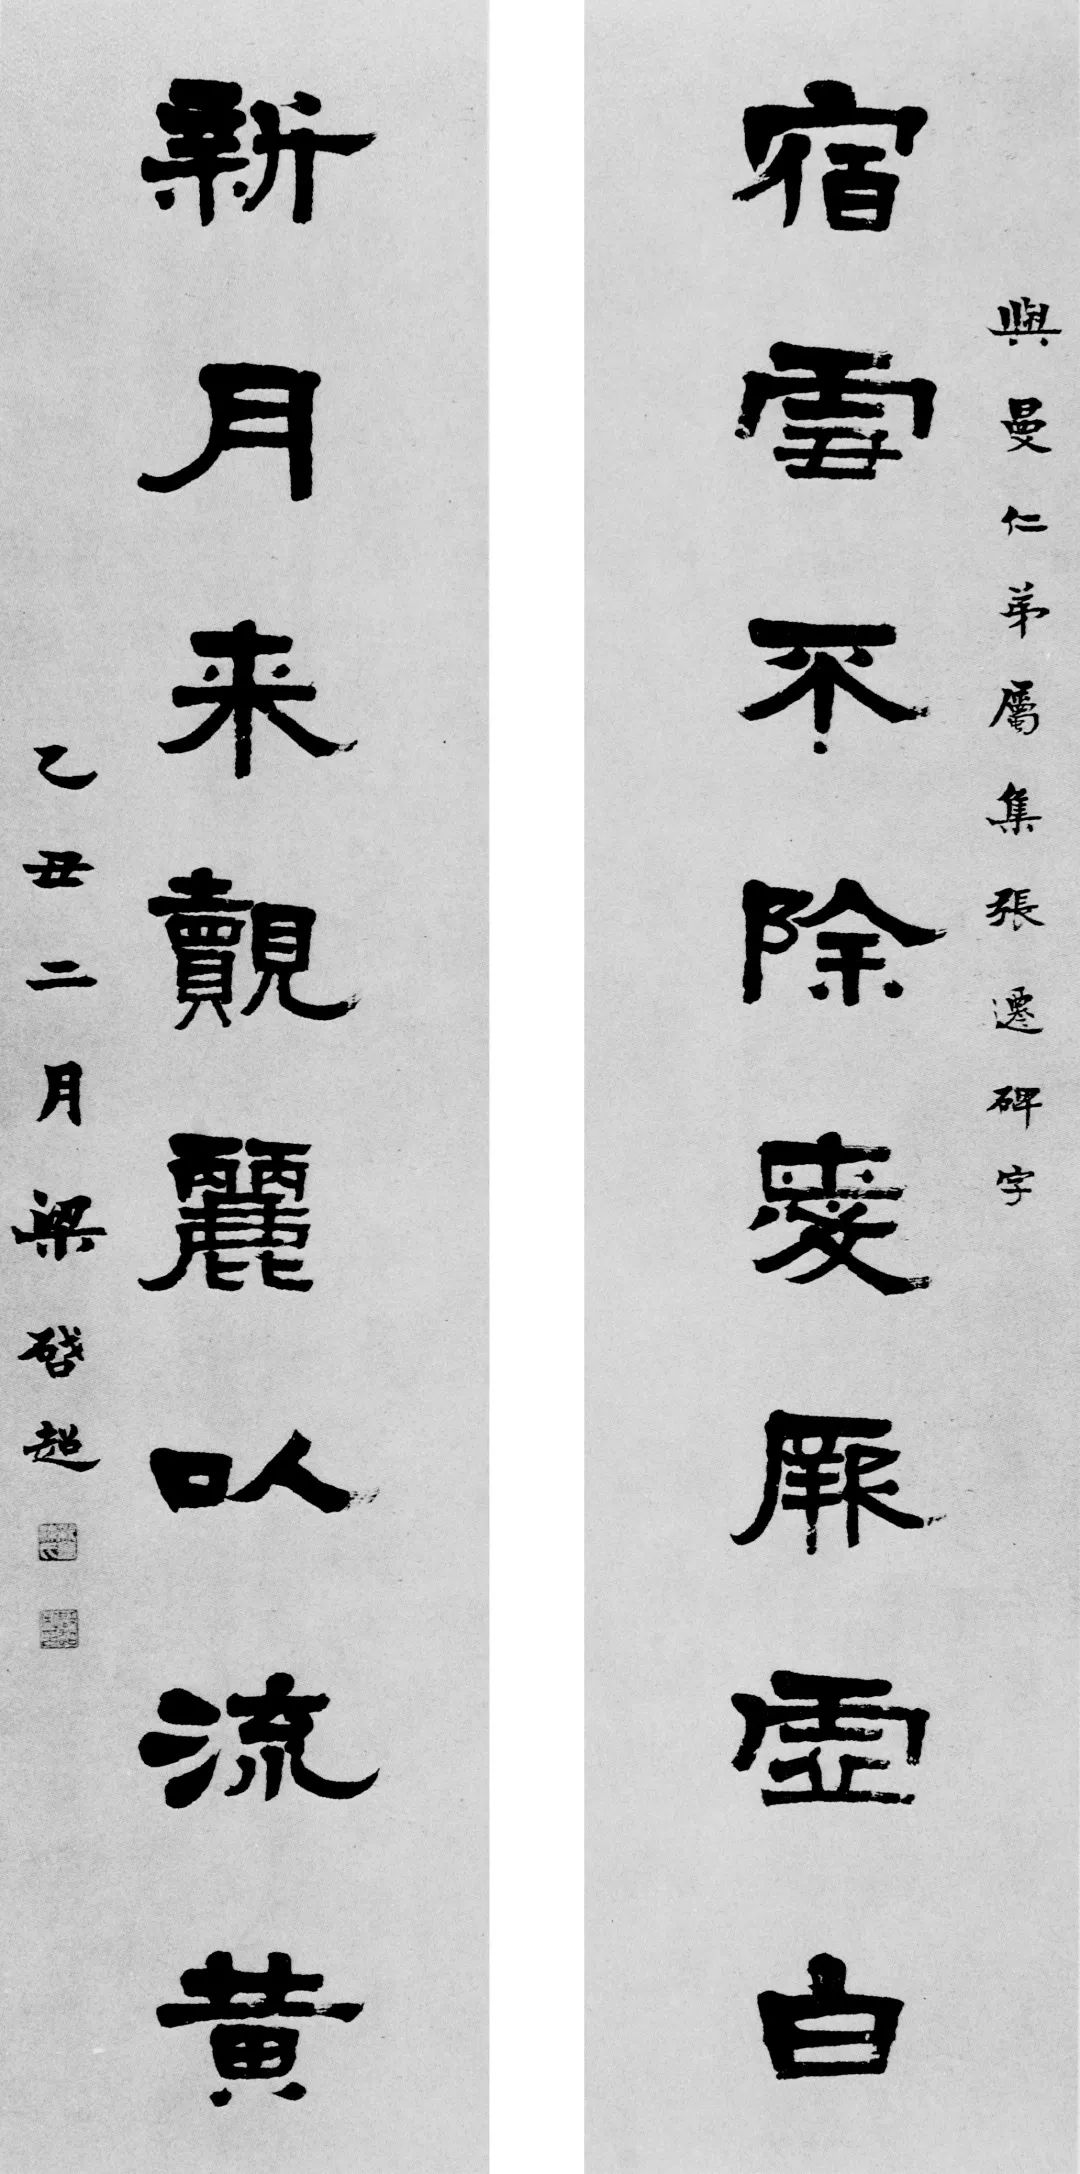 與曼仁弟屬集張遷碑字
宿雲不除愛厥虛白
新月来覿麗以流黃
乙丑二月梁啓超